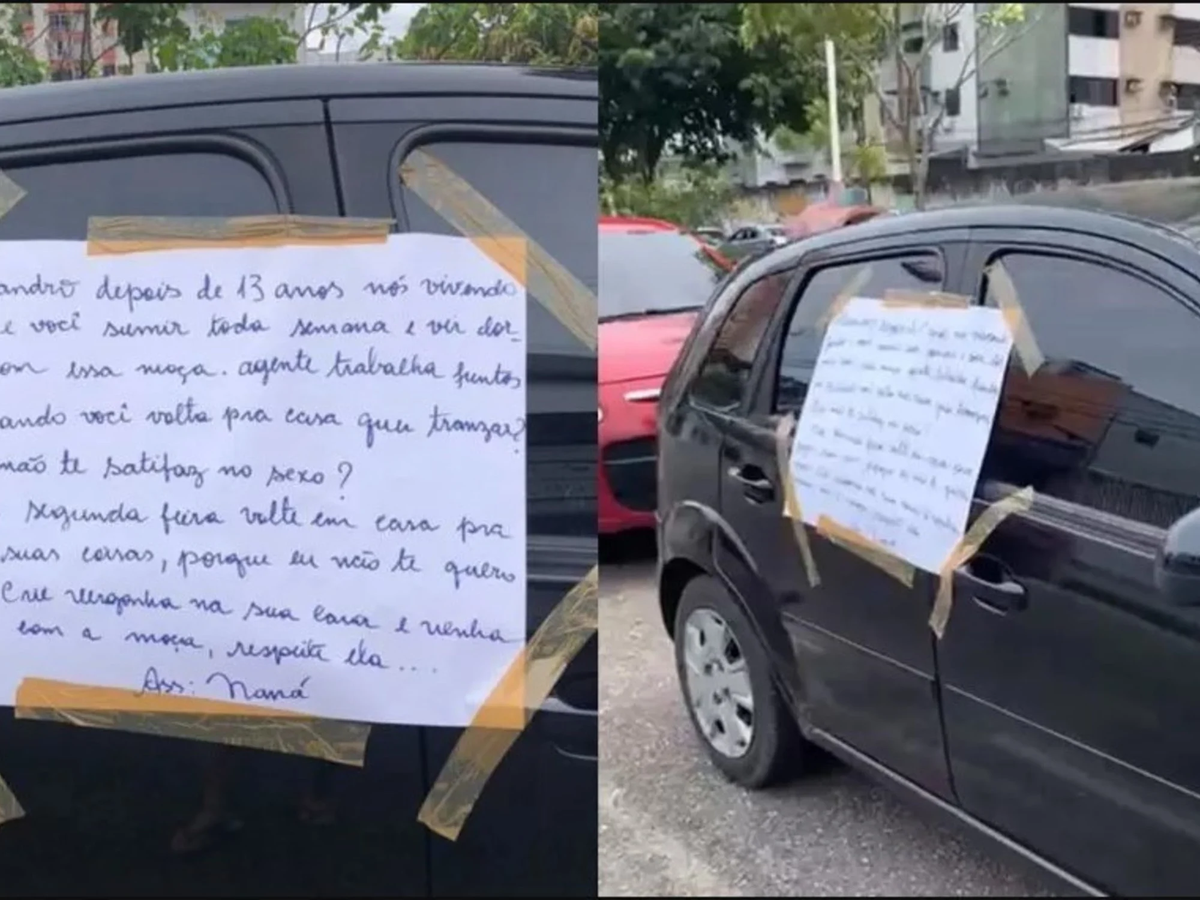 andro depois de 13 anos nós vivendo
e você sumir toda semana e vir dor_
om essa moça. agente trabalha juntos
ando você volta pra casa quer tranzar?
não te satifaz no sexo?
segunda feira volte em casa pra
suas coisas, porque eu não te quero
Crie vergonha na sua cara e venha
com a moça, respeite ela....
Ass: Naná